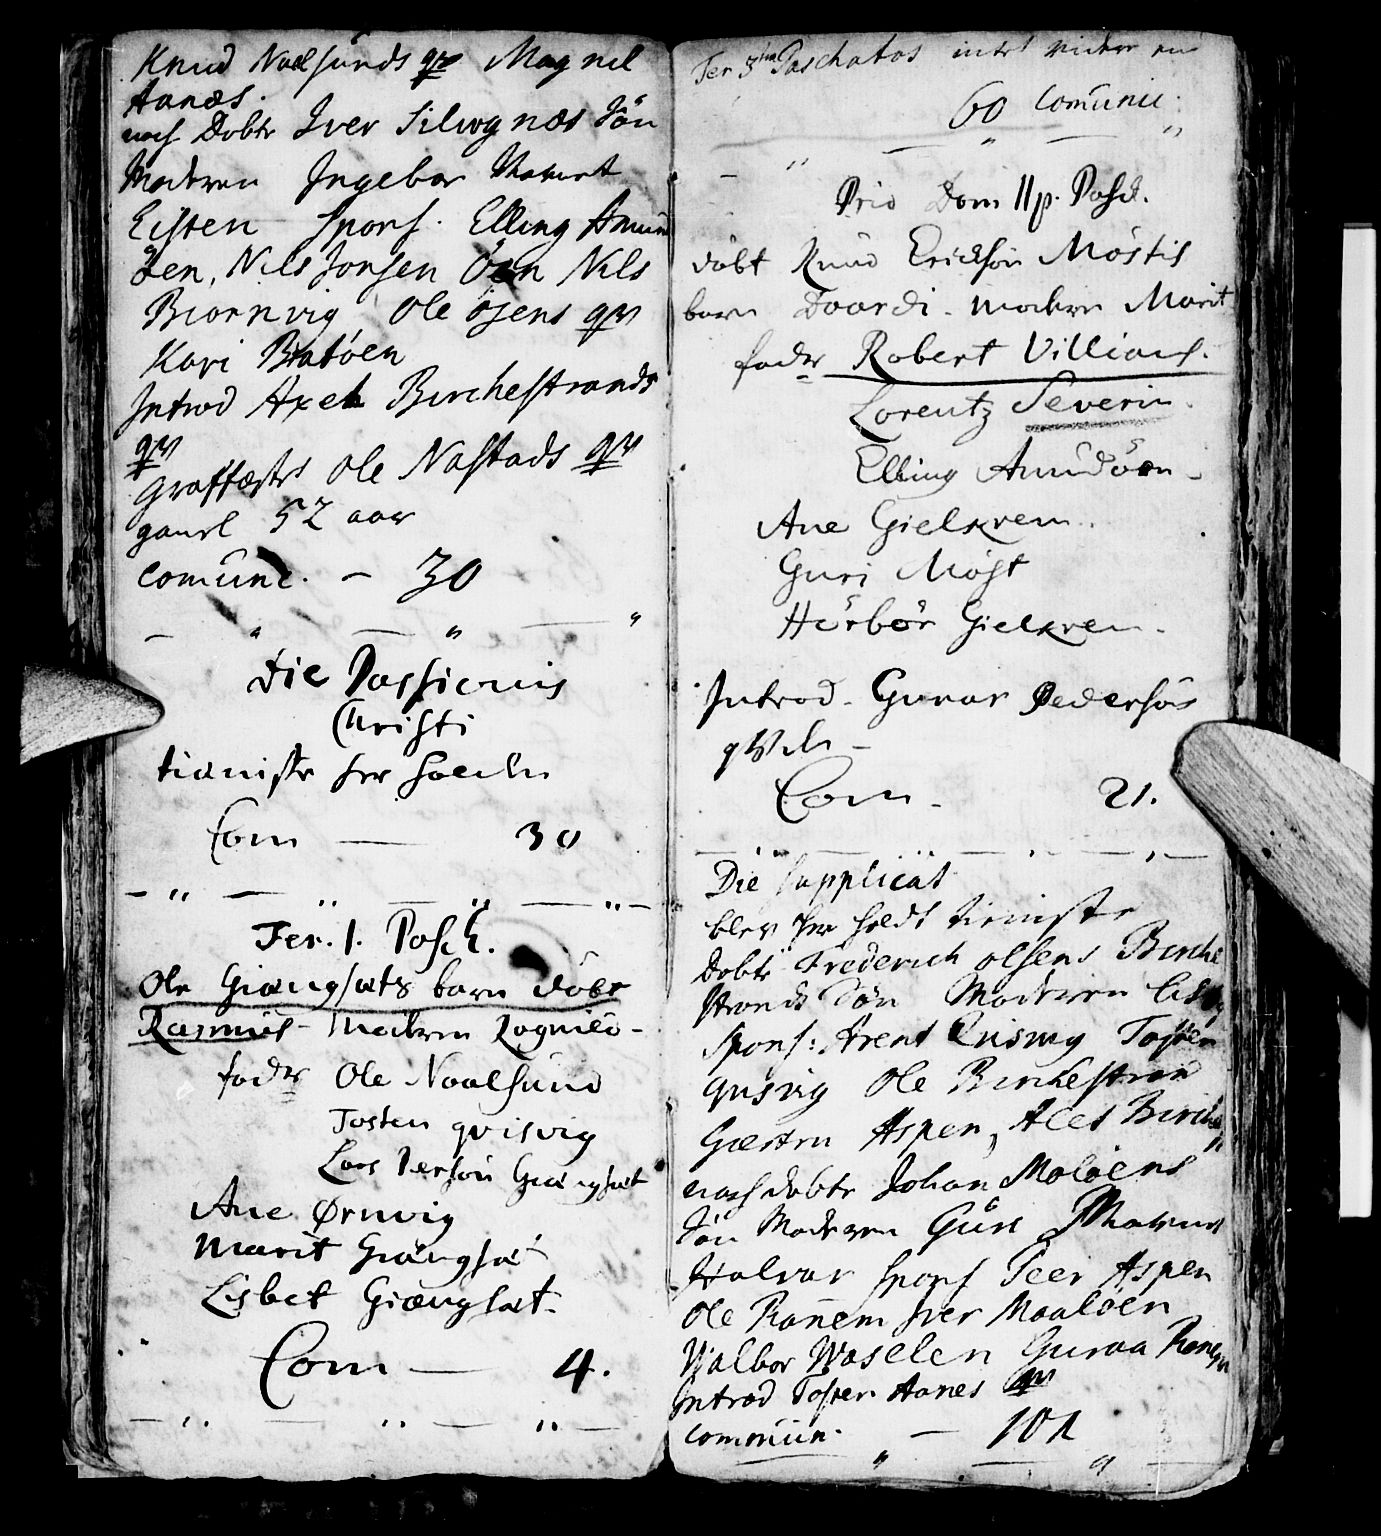 Knud Naalsunds qv Magnil
Aanæs.
noch Døbte Iver Silwognæs Søn
Moderen Ingebor Nafnet
Eisten Spons. Elling Amun
døen, Nils Jonsen Øen Nils
Biornvig Ole Øyens qv
Kari Bratøen
Introd Axel Birchestrands
qv
Graffæste Ole Nastads qv
gaml 52 aar
Comunc. — 30
Die Passionis
Christi
tieniste her holden
Com — 30
Fer. 1. Pasch.
Ole Giængsæts barn døbt
Rasmus Modern Ragnild
fadr Ole Naalsund
Tosten qvisvig
Lars Persøn Giængsæt
Ane Ørnvig
Marit Giængsæt
Lisbet Giængsæt
Com — 4.
Fer 3tia Paschatos intet
60 Comunic.
Dom II p. Pasch.
døbt Knud Ericksøn Møstis
barn Moderen Marit
fadr Robert Villians.
Lorentz Severin.
Elling Amundøen
Ane Gielkrem.
Guri Møst
Gielkrem.
Introd. Gunar Pedersøns
Com. 21.
Die Supplicat
blev her holdt tieniste
Døbte Frederich Olsens Birche
strands Søn Moderen
Spons: Arent Qvisvig Tosten
qvisvig Ole Birchestrand
Giertru Aspen, Ales Birche
noch døbte Johan Maløens
Søn Moderen Guri Nafnet
Halvar Spons Peer Aspen
Ole Ranem Iver Maaløen
Walbor Waselen Guraa Ranem
Introd Tosten Aanes qv
Commun. — 101